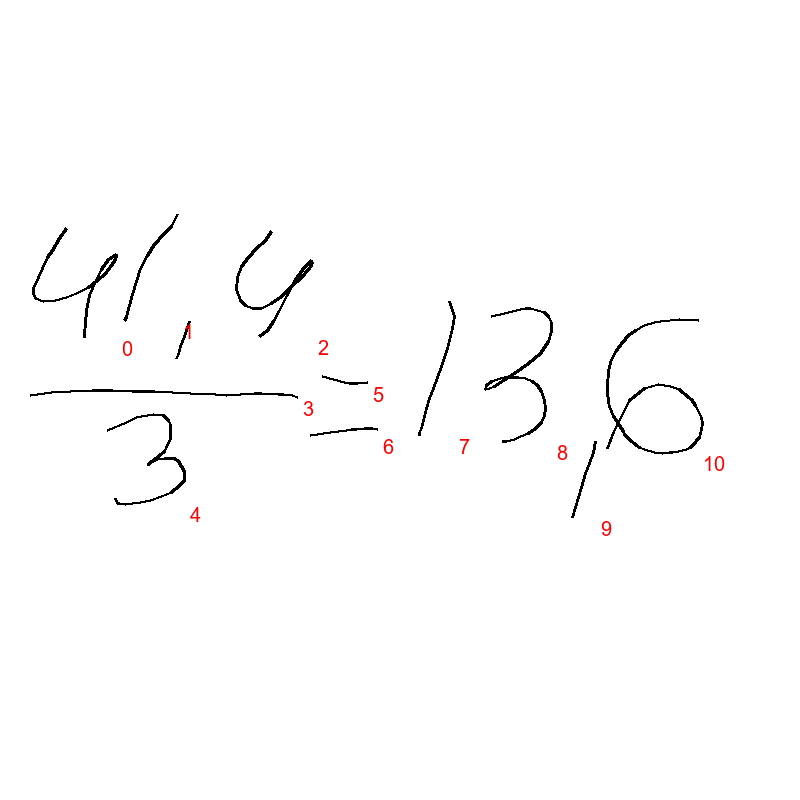 41,4
3
=13,6
0
1
2
3
4
5
6
7
8
9
10